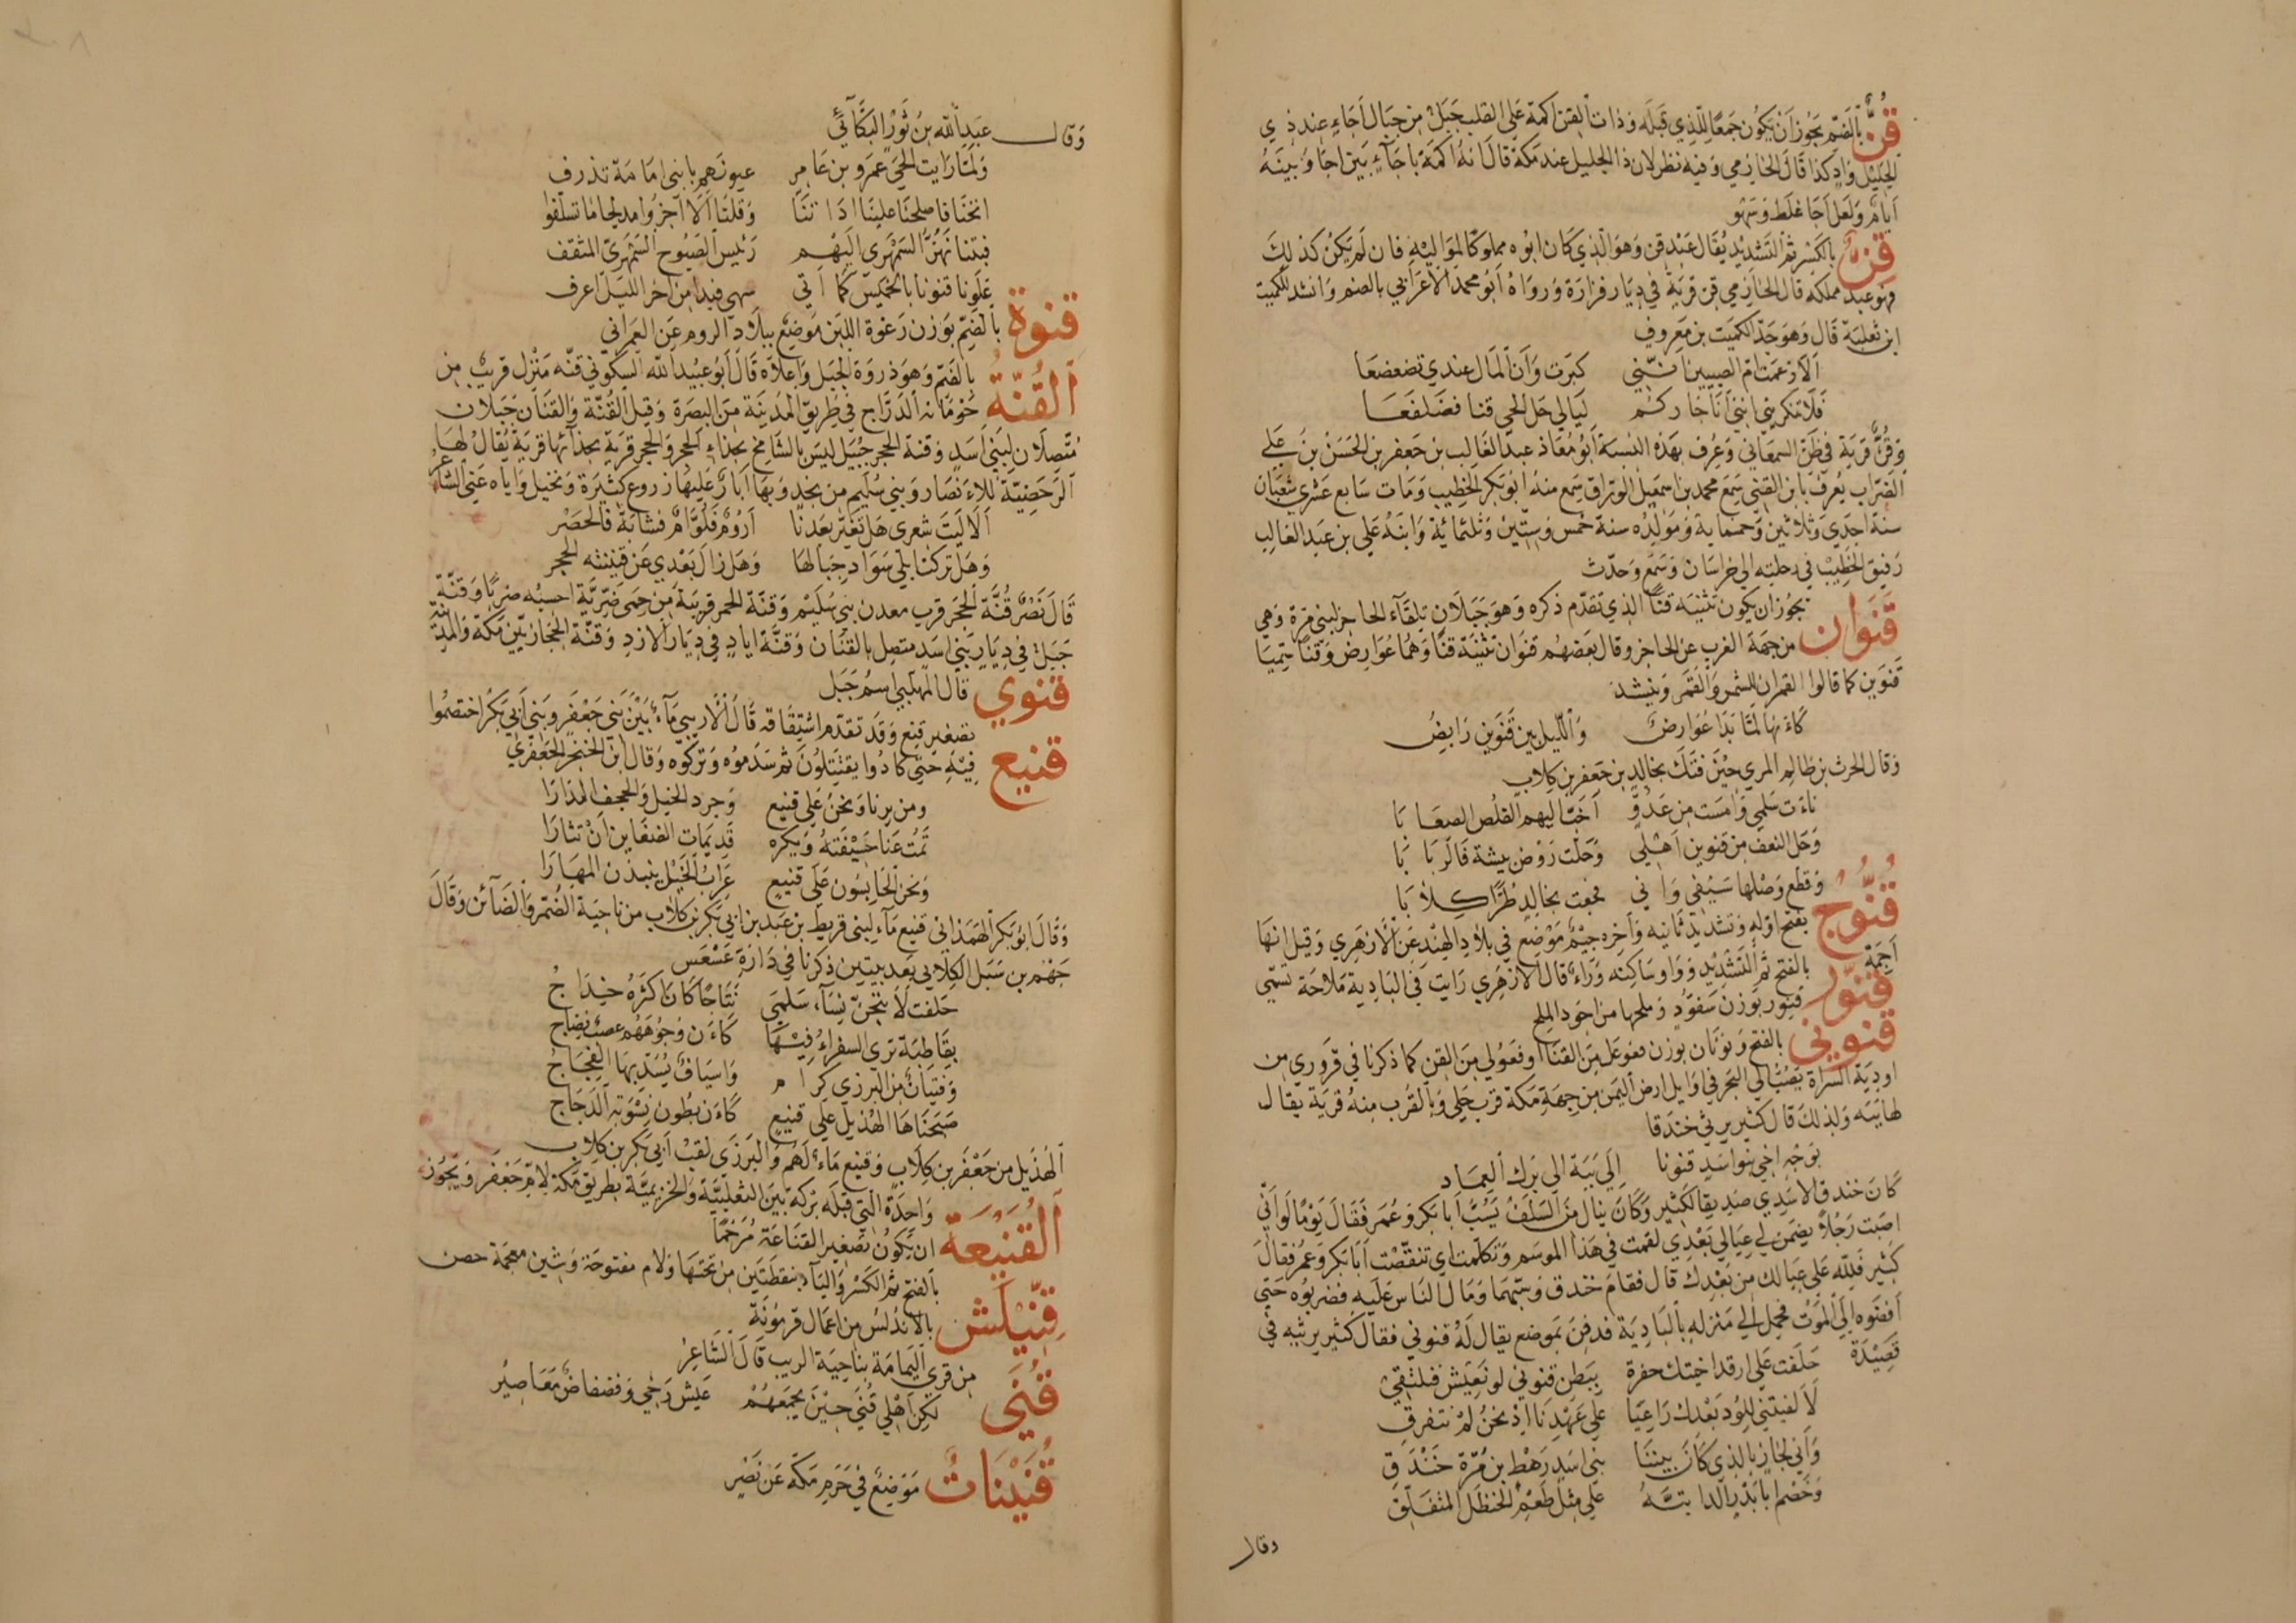 قُنٌّ بالضم يجوز ان يكون جمعا للذي قبله وذات القن اكمة على القلب جبل من جبال اجاء عند ذي
الجليل واد كذا قال الحازمي وفيه نظر لان ذا الجليل عند مكة قال انه اكمة باجاء بين اجا وبينه
ايام ولعل اجا غلط وسهو
قِنٌّ بالكسر ثم التشديد يقال عبد قن وهو الذي كان ابوه مملوكا لمواليه فان لم يكن كذلك
فهو عبد مملكة قال الحازمي قن قرية في ديار فزارة ورواه ابو محمد الاعرابي بالضم وانشد للكميت
ابن ثعلبة قال وهو جد الكميت بن معروف
الا زعمت ام الصبيين انني كبرت وان المال عندي تضعضعا
فلا تنكريني انني انا جاركم ليالي حل الحي قنا فضلفعا
وقُنٌّ قرية في ظن السمعاني وعرف بهذه النسبة ابو معاذ عبد الغالب بن جعفر بن الحسن بن علي
الضراب يعرف بابن القني سمع محمد بن اسمعيل الوراق سمع منه ابو بكر الخطيب ومات سابع عشري شعبان
سنة احدي وثلاثين وخمسماية ومولده سنة خمس وستين وثلثمائة وابنه علي بن عبد الغالب
رفيق الخطيب في رحلته الي خراسان وسمع وحدث
قَنَوان يجوز ان يكون تثنيه قنا الذي تقدم ذكره وهو جبلان تلقاء الحاجر لبني مرة وهي
من جهة الغرب عن الحاجر وقال بعضهم قنوان تثنية قنا وهما عوارض وقنا سميا
قنوين كما قالوا القمران للشمس والقمر وينشد
كاءنها لما بدا عوارض والليل بين قنوين رابض
وقال الحرث بن ظالم المري حين فتك بخالد بن جعفر بن كلاب
ناءت سلمي وامست من عدو اخت اليهم القلص الصعابا
وحل النعف من قنوين اهلي وحلت روض بيشة فالربابا
وقطع وصلها سيفي واني فجعت بخالد طرا كلابا
قَنُّوج بفتح اوله وتشديد ثانيه وآخره جيم موضع في بلاد الهند عن الازهري وقيل انها
اجمة
قَنّور بالفتح ثم التشديد وواو ساكنه وراء قال الازهري رايت في البادية ملاحة تسمي
قنور بوزن سفود وملحها من اجود الملح
قنوني بالفتح ونونان بوزن فعوعل من القنا او فعولي من القن كما ذكرنا في قروري من
اودية السراة يصب الي البحر في اوايل ارض اليمن من جهة مكة قرب حلي وبالقرب منه قرية يقال
لها يبه ولذلك قال كثير يرثي خندقا
بوجه اخي بنو اسد قنونا الي يبة الي برك الغماد
كان خندق الاسدي صديقا لكثير وكان ينال من السلف يسب ابا بكر وعمر فقال يوما لو اني
اصبت رجلا يضمن لي عيالي بعدي لقمت في هذا الموسم وتكلمت اي تنقصت ابا بكر وعمر فقال
كثير فلله علي عيالك من بعدك قال فقام خندق وسبهما ومال الناس عليه فضربوه حتى
افضوه الى الموت فحمل الي منزله بالبادية فدفن بموضع يقال له قنوني فقال كثير يرثيه في
قصيدة
حلفت علي ارقد اختك حفرة ببطن قنوني لو نعيش فنلتقي
لالفيتني للود بعدك راعيا علي عهدنا اذ نحن لم نتفرق
واني لجاز بالذي كان بيننا بني اسد رهط بن مرة خندق
وخصم ابا بدر الد ابته على مثل طعم الحنظل المتفلق
وقال
وقال عبد الله بن ثور البكائي
ولما رايت الحي عمرو بن عامر عيونهم بابني امامة تذرف
انخنا فاصلحنا علينا اداتنا وقلنا الا اجزوا مدلجا ما تسلفوا
فبتنا نهز السمهري اليهم وبئس الصبوح السمهري المثقف
علونا قنونا بالخميس كما اتي سهي فبدا من اخر الليل اعرف
قنوة بالضم بوزن رغوة اللبن موضع ببلاد الروم عن العمراني
القُنّة بالضم وهو ذروة الجبل واعلاه قال ابو عبيد الله السكوني قنه منزل قريب من
حومانه الدراج في طريق المدينة من البصرة وقيل القنة والقنان جبلان
متصلان لبني اسد وقنة الحجر جبيل ليس بالشامخ بحذاء الحجر والحجر قرية بحذائها قرية يقال لها
الرحضية للاءنصار وبني سليم من نجد وبها ابار عليها زروع كثيرة ونخيل واياه عني الشاعر
الا ليت شعري هل تغير بعدنا اروم فلوام فشابة فالحضر
وهل تركنا بلي سواد جبالها وهل زال بعدي عن قنينته الحجر
قال نصر قنة الحجر قرب معدن بني سليم وقنة الحمر قريبة من حمى ضرية احسبه ضربا وقنة
جبل في ديار بني اسد متصل بالقنان وقنة اياد في ديار الازد وقنة الحجاز بين مكة والمدينة
قنوي قال المهلبي اسم جبل
قنيع تصغير قنع وقد تقدم اشتقاقه قال الاريبي ماء بين بني جعفر وبني ابي بكر اختصموا
فيه حتي كادوا يقتتلون ثم سدموه وتركوه وقال ابن الخنجر الجعفري
ومن يرنا ونحن علي قنيع وجرد الخيل والحجف المدارا
تمت عنا حشفته ويكره قديمات الضغاين ان تثارا
ونحن الحابسون علي قنيع عراب الخيل ينبذن المهارا
وقال ابو بكر الهمذاني قنيع ماء لبني قريط بن عبد بن ابي بكر بن كلاب من ناحية الضمر والضائن وقال
جهم بن سبل الكلابي بعد بيتين ذكرنا في دارة عسعس
حلفت لانتجن نساء سلمى نتاجا كان اكثره خداج
بقاطبة تري السفراء فيها كاءن وجوههم عصب نضاج
وفتيان من البرزي كرام واسياف يسد بها الفجاج
صبحناها الهذيل علي قنيع كاءن بطون نسوته الدجاج
الهذيل من جعفر بن كلاب وقنيع ماء لهم والبرزي لقب ابي بكر بن كلاب
القُنَيْعَة واحدة التي قبله بركة بين الثعلبية والخزيمية بطريق مكة لام جعفر ويجوز
ان يكون تصغير القناعة مرخما
قَنِيْلَش بالفتح ثم الكسر والياء بنقطتين من تحتها ولام مفتوحة وشين معجمة حصن
بالاندلس من اعمال قرمونة
قُنَي من قري اليمامة بناحية الريب قال الشاعر
لكن اهلي قني حين يجمعهم عيش رخي وفضفاض معاصير
قُنَيْنَات موضع في حرم مكة عن نصر